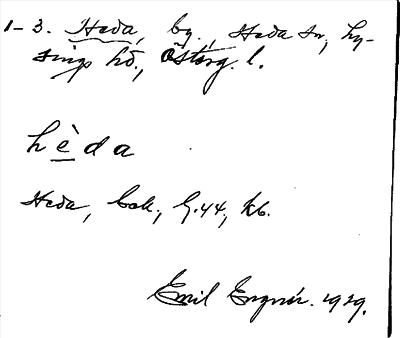 1-3. Heda, by., Heda sn, Ly-
sings hd., Österg. l.
hèda
Heda, bok., G.44, kb.
Emil Engnér. 1929.